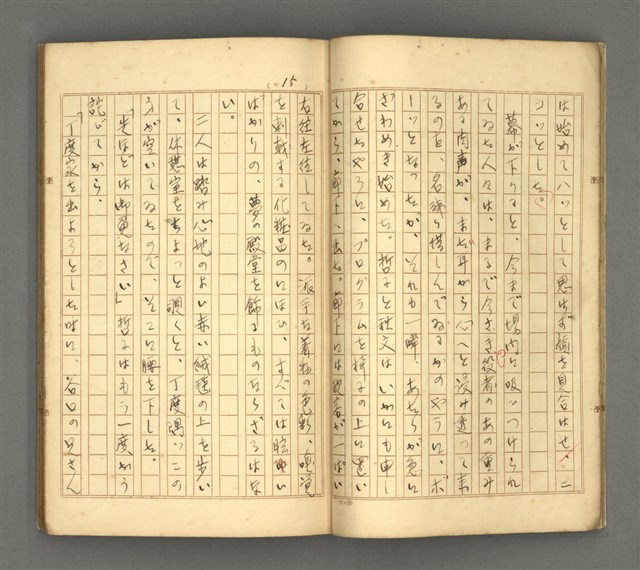 は始めてハッとして思はず顔を見合はせ、ニ
コッとした。
幕が下りると、今まで場内に吸ひつけられ
てゐた人々は、まるで今さき役者のあの凄み
ある肉声が、まだ耳から心へと浸み透って来
るのを、名残り惜しんでゐるかのやうに、ボ
ーッとなったが、それも一瞬、あちらが急に
ざわめき始めた。哲子と秋文はいかにも申し
合せたやうに、プログラムを椅子の上に置い
てから、廊下へ出た。廊下には
が一ぱい
15
右往左往してゐた。派手な着物の色彩、嗅覚
を刺戟する化粧品のにほひ、すべては眩い
ばかりの、夢の殿堂を飾るものならざるはな
い。
二人は踏み心地のよい赤い絨毯の上を歩い
て、休憩室をちょっと覗くと、丁度隅っこの
方が空いてゐたので、そこに腰を下した。
「先ほどは御免なさい」哲子はもう一度かう
詫びてから、
「丁度家を出ようとした時に、谷口の兄さん